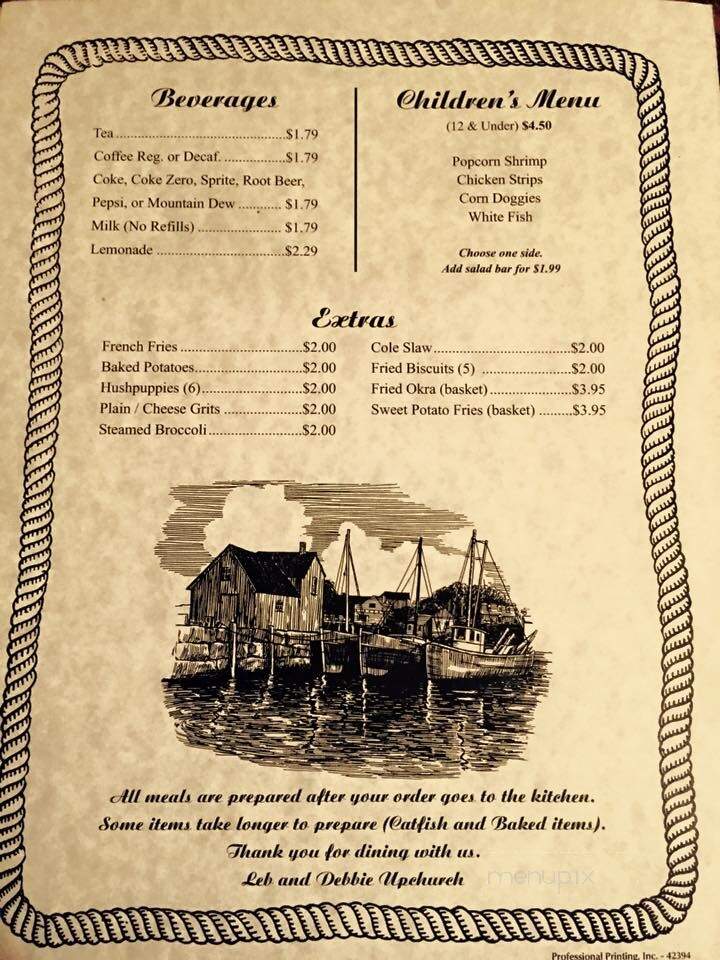 Beverages
Tea ..........................................$1.79
Coffee Reg. or Decaf. ................$1.79
Coke, Coke Zero, Sprite, Root Beer,
Pepsi, or Mountain Dew ........... $1.79
Milk (No Refills) ..................... $1.79
Lemonade ................................$2.29
Children's Menu
(12 & Under) $4.50
Popcorn Shrimp
Chicken Strips
Corn Doggies
White Fish
Choose one side.
Add salad bar for $1.99
Extras
French Fries ...............................$2.00
Baked Potatoes...........................$2.00
Hushpuppies (6)..........................$2.00
Plain / Cheese Grits ....................$2.00
Steamed Broccoli........................$2.00
Cole Slaw...................................$2.00
Fried Biscuits (5) .......................$2.00
Fried Okra (basket).....................$3.95
Sweet Potato Fries (basket) .........$3.95
All meals are prepared after your order goes to the kitchen.
Some items take longer to prepare (Catfish and Baked items).
Thank you for dining with us.
Leb and Debbie Upchurch
menupix
Professional Printing, Inc. - 42394